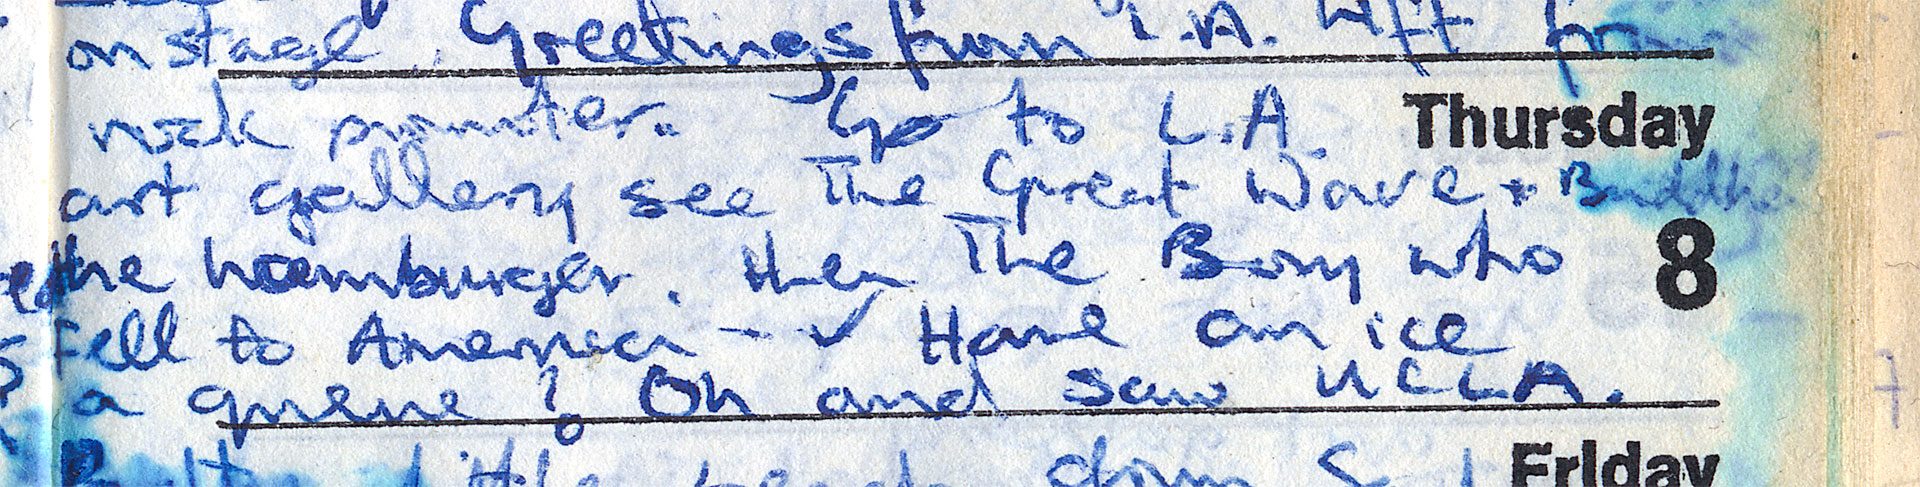 on stage. Greetings from L.A. Lift from
rock promoter. Go to L.A. Thursday
art gallery see The Great Wave + Buddha
the hamburger. then The Boy who 8
fell to America -- ✓ Have an ice
a queue? Oh and saw UCLA.
little beach down Friday